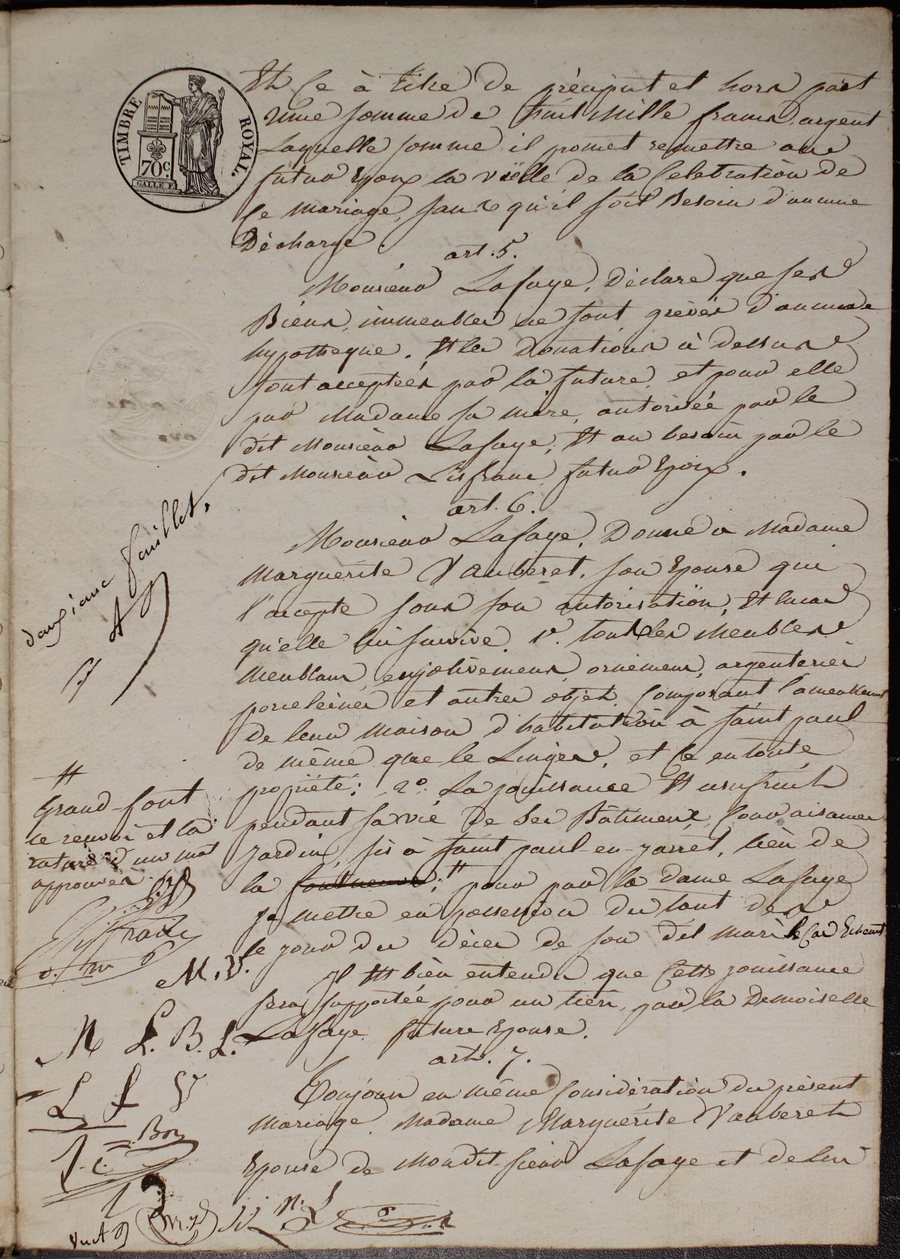 TIMBRE ROYAL.
70c
Et ce à titre de préciput et hors part
une somme de huit mille francs, argent
laquelle somme il promet remettre au
futur Epoux la veille de la Célébration de
ce mariage, sans qu'il soit Besoin d'aucune
Décharge.
art. 5.
Monsieur Lafaye, déclare que ses
Biens immeubles ne sont grevés d'aucune
hypothèque. Et les donations ci dessus
sont acceptées par la future, et pour elle
par Madame sa mère, autorisée par le
dit Monsieur Lafaye, Et au besoin par le
dit Monsieur Lisfranc, futur Epoux.
art. 6.
Monsieur Lafaye, Donne à Madame
Marguerite Vauberet, son Epouse qui
l'accepte sous son autorisation, Et en cas
qu'elle lui survive. 1°. tous les Meubles
Meublans, enjolivemens, ornemens, argenteries
porcelaines et autres objets, Composant l'ameublement
de leur maison d'habitation à Saint paul
de même que le Linge, et Ce en toute
propriété; 2° La jouissance Et usufruit
pendant sa vie de ses Bâtimens, Cour aisances
Jardin, sis à Saint paul-en-jarrêt, lieu de
la # pour par la dame Lafaye
se mettre en possession du tout dès
le jour du décès de son dit mari le Cas Echéant
Il Est bien entendu que Cette jouissance
sera supportée pour un tiers, par la Demoiselle
Lafaye future Epouse.
art. 7.
Toujours en même Considération du présent
mariage, Madame Marguerite Vauberet
Epouse de Mondit-sieur Lafaye et de lui
deuxième feuillet.
#
Grand-font
le renvoi et la
rature d'un mot
approuvés.
M. V.
M L. B. L.
L L